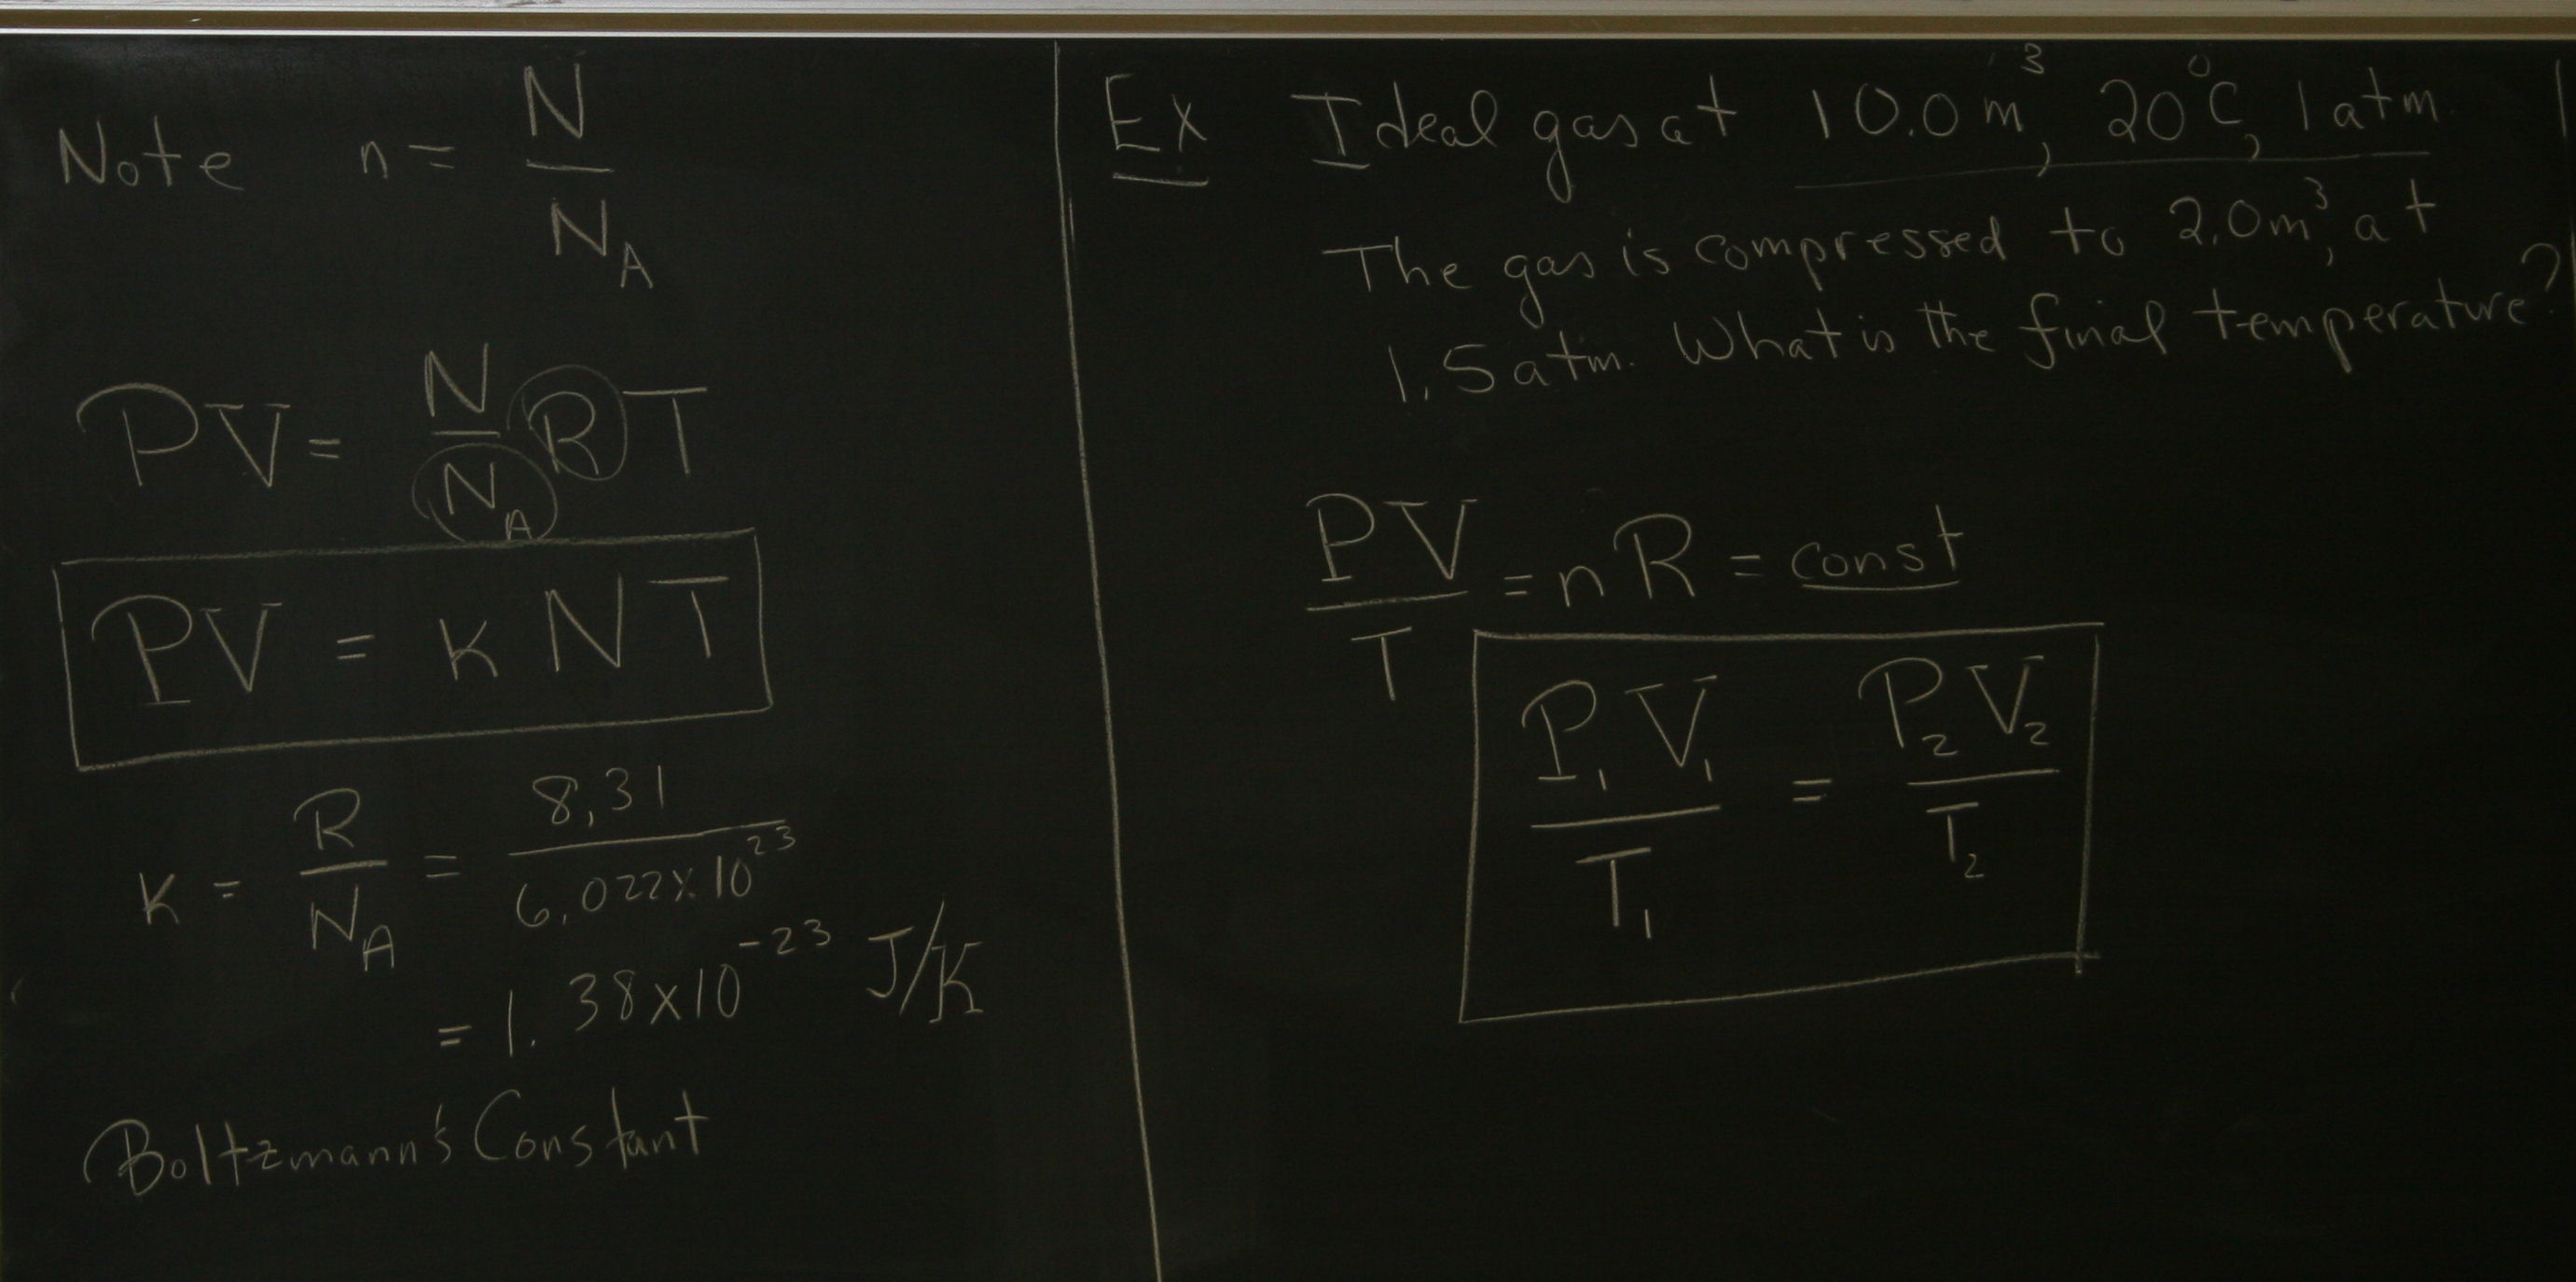 Note n = N/N_A
PV = N/N_A RT
PV = k N T
k = R/N_A = 8.31/6.022×10^23
= 1.38×10^-23 J/K
Boltzmann's Constant
Ex Ideal gas at 10.0 m^3, 20°C, 1 atm.
The gas is compressed to 2.0 m^3, at
1.5 atm. What is the final temperature?
PV/T = nR = const
P_1 V_1/T_1 = P_2 V_2/T_2